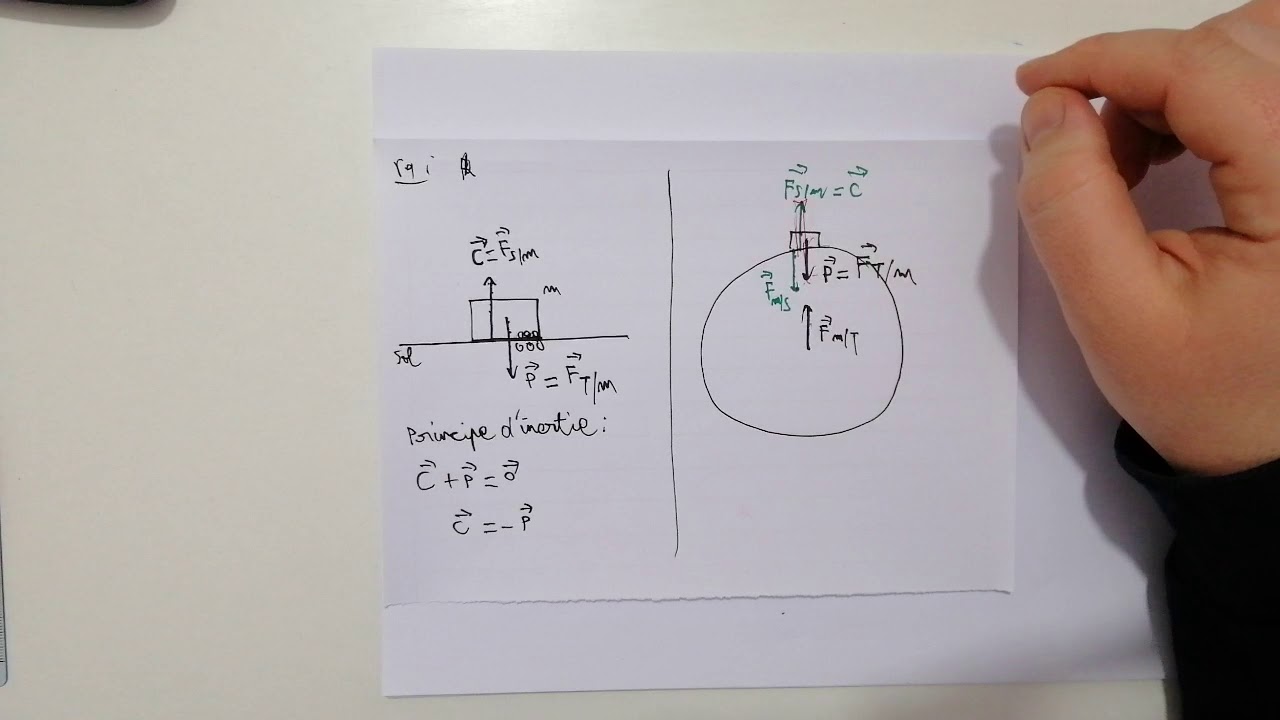 rq :
C⃗ = F⃗s/m
m
sol
P⃗ = F⃗T/m
Principe d'inertie :
C⃗ + P⃗ = 0⃗
C⃗ = - P⃗
F⃗s/m = C⃗
P⃗ = F⃗T/m
F⃗m/s
F⃗m/T